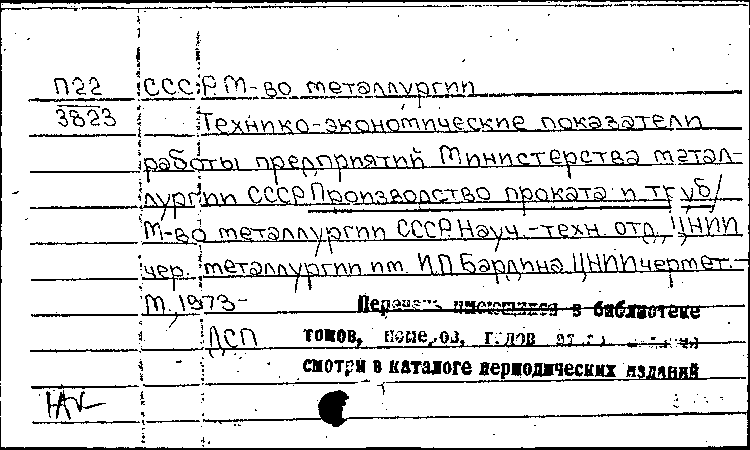 П22 СССР. М-во металлургии
3823 Технико-экономические показатели
работы предприятий Министерства метал-
лургии СССР. Производство проката и труб/
М-во металлургии СССР. Науч.-техн. отд., ЦНИИ
чер. металлургии им. И.П. Бардина. ЦНИИчермет. -
М., 1973-
Перечень имеющихся в библиотеке
ДСП томов, номеров, годов
смотри в каталоге периодических изданий